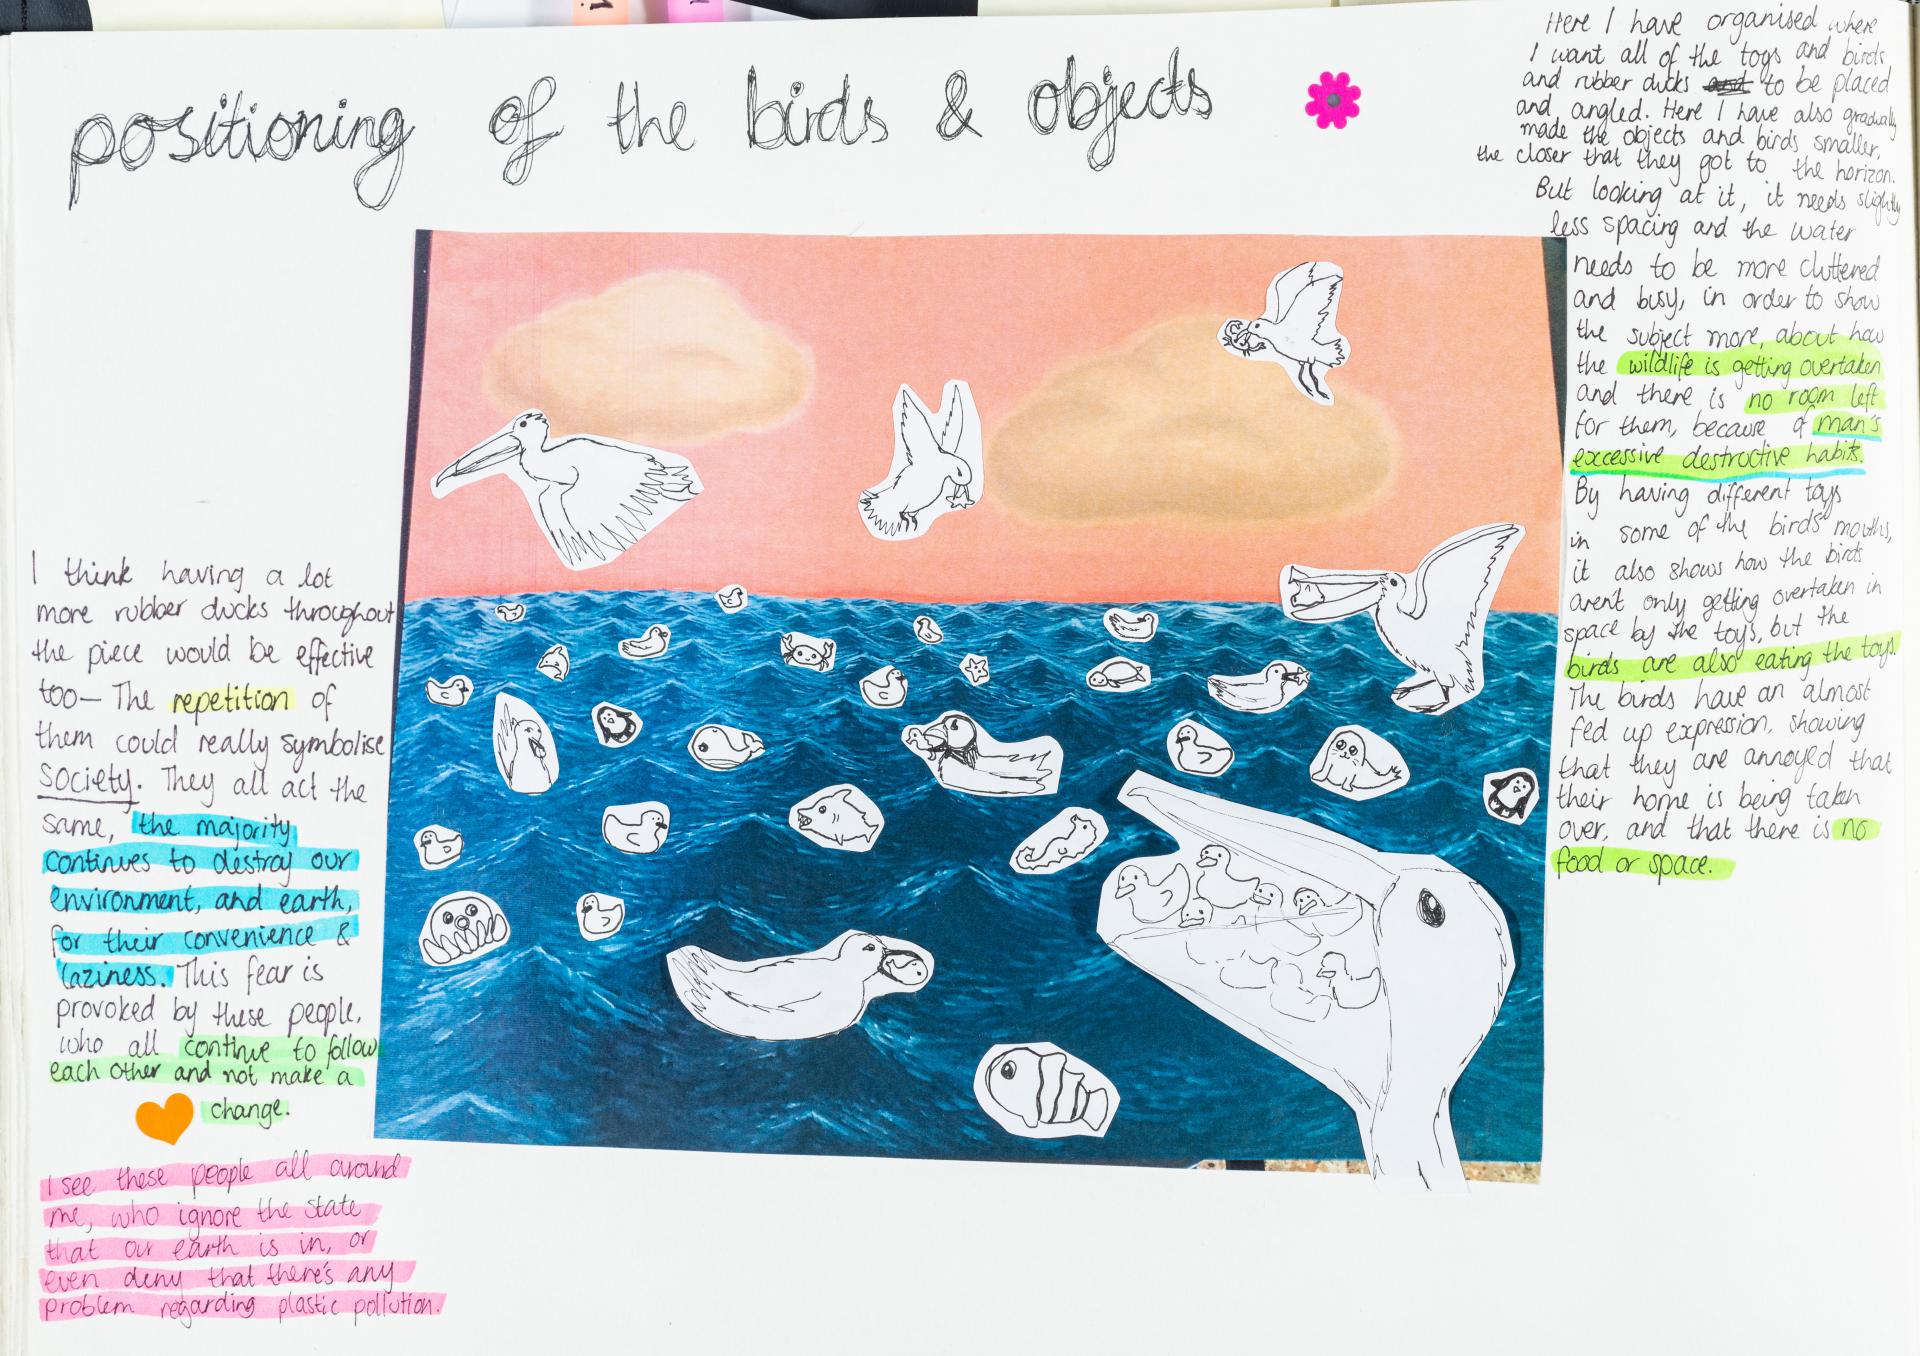 positioning of the birds & objects
Here I have organised where
I want all of the toys and birds
and rubber ducks and to be placed
and angled. Here I have also gradually
made the objects and birds smaller,
the closer that they got to the horizon.
But looking at it, it needs slightly
less spacing and the water
needs to be more cluttered
and busy, in order to show
the subject more, about how
the wildlife is getting overtaken
and there is no room left
for them, because of man's
excessive destructive habits.
By having different toys
in some of the birds' mouths,
it also shows how the birds
aren't only getting overtaken in
space by the toys, but the
birds are also eating the toys.
The birds have an almost
fed up expression, showing
that they are annoyed that
their home is being taken
over, and that there is no
food or space.
I think having a lot
more rubber ducks throughout
the piece would be effective
too— The repetition of
them could really symbolise
society. They all act the
same, the majority
continues to destroy our
environment, and earth,
for their convenience &
laziness. This fear is
provoked by these people,
who all continue to follow
each other and not make a
change.
I see these people all around
me, who ignore the state
that our earth is in, or
even deny that there's any
problem regarding plastic pollution.